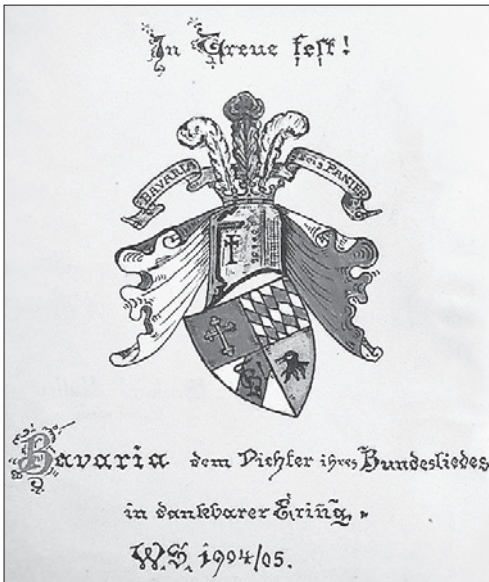 In Treue fest!
BAVARIA sei's PANIER
Bavaria dem Dichter ihres Bundesliedes
in dankbarer Eriñg.
W.S. 1904/05.